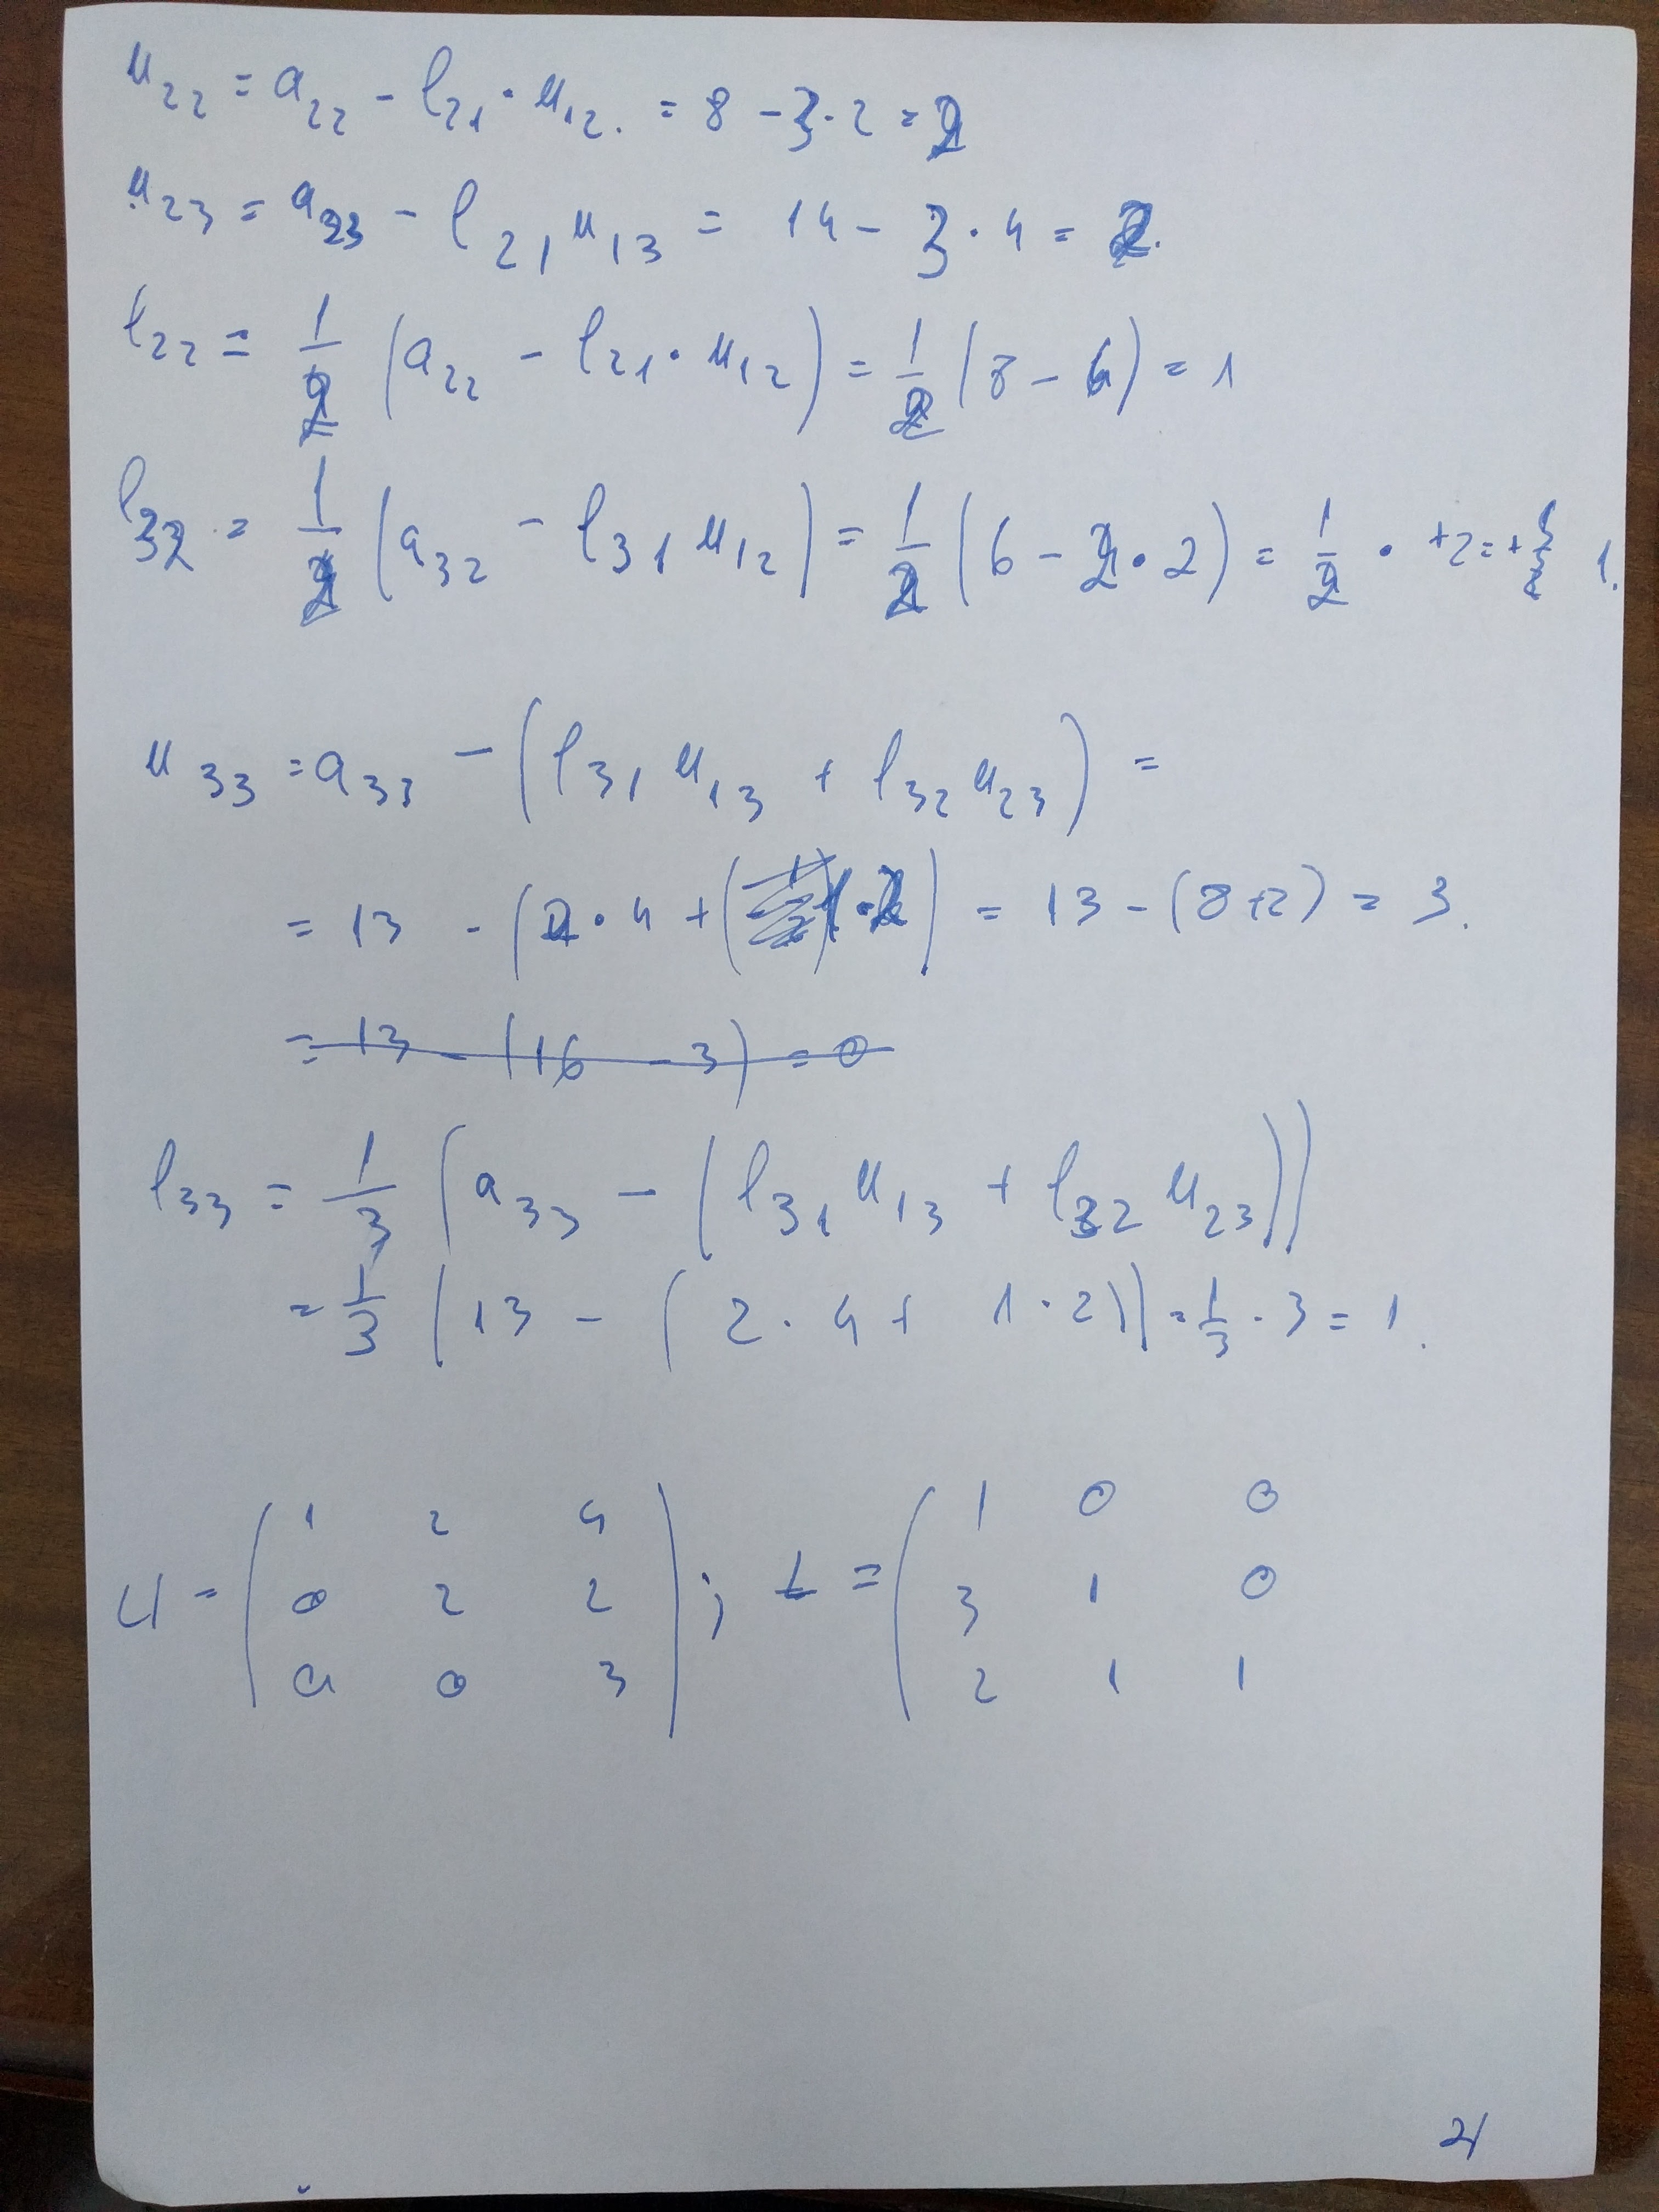 u₂₂ = a₂₂ - l₂₁ · u₁₂. = 8 - 3 · 2 = 2
u₂₃ = a₂₃ - l₂₁ u₁₃ = 14 - 3 · 4 = 2.
l₂₂ = 1/2 (a₂₂ - l₂₁ · u₁₂) = 1/2 (8 - 6) = 1
l₃₂ = 1/2 (a₃₂ - l₃₁ u₁₂) = 1/2 (6 - 2 · 2) = 1/2 · +2 = + 1.
u₃₃ = a₃₃ - (l₃₁ u₁₃ + l₃₂ u₂₃) =
= 13 - (2 · 4 + ( 1 · 2) = 13 - (8+2) = 3.
= 13 - (16 - 3) = 0
l₃₃ = 1/3 (a₃₃ - (l₃₁ u₁₃ + l₃₂ u₂₃))
= 1/3 (13 - (2 · 4 + 1 · 2)) = 1/3 · 3 = 1.
1 2 4 1 0 0
U = ( 0 2 2 ) ; L = ( 3 1 0
0 0 3 2 1 1
2/